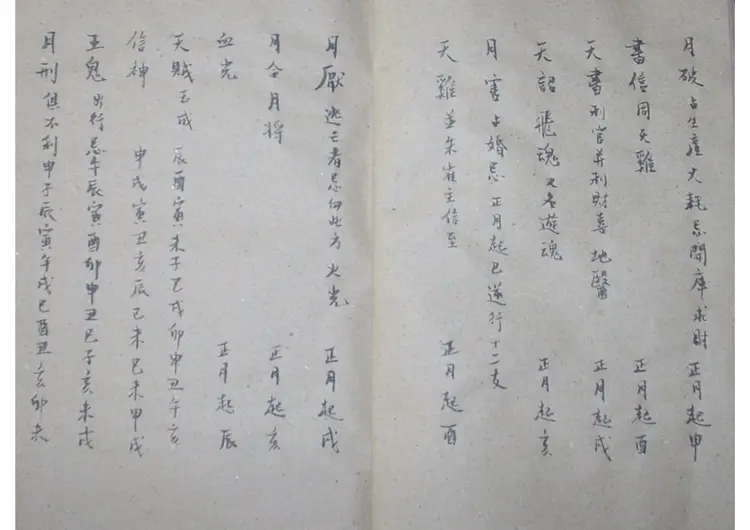 月破占生產大耗忌開庫求財 正月起申
書信同天雞 正月起酉
天書利官并利財喜 地醫 正月起戌
天詔 飛魂 又名遊魂 正月起亥
月害占婚忌 正月起巳逆行十二支
天雞並朱雀主信至 正月起酉
月厭逃亡者忌向此方 火光 正月起戌
月合月將 正月起亥
血光 正月起辰
天賊 辰酉寅未子巳戌卯申丑午亥
信神 申戌寅丑亥辰巳未巳未申戌
五鬼出行忌午辰寅酉卯申丑巳子亥未戌
月刑俱不利申子辰寅午戌巳酉丑亥卯未